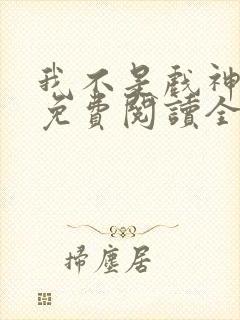 我不是戲神
免費閱讀全
掃塵居